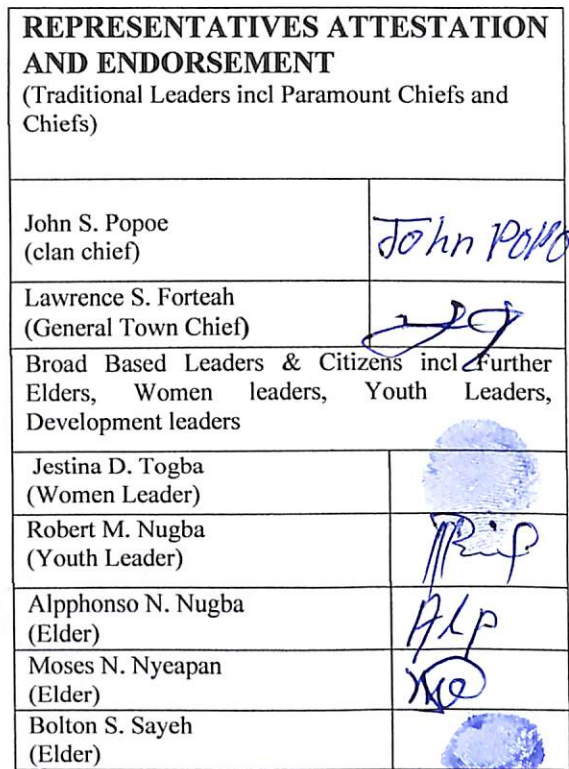 REPRESENTATIVES ATTESTATION
AND ENDORSEMENT
(Traditional Leaders incl Paramount Chiefs and
Chiefs)
John S. Popoe
(clan chief)
John POPO
Lawrence S. Forteah
(General Town Chief)
Broad Based Leaders & Citizens incl Further
Elders, Women leaders, Youth Leaders,
Development leaders
Jestina D. Togba
(Women Leader)
Robert M. Nugba
(Youth Leader)
Alpphonso N. Nugba
(Elder)
Alp
Moses N. Nyeapan
(Elder)
Bolton S. Sayeh
(Elder)